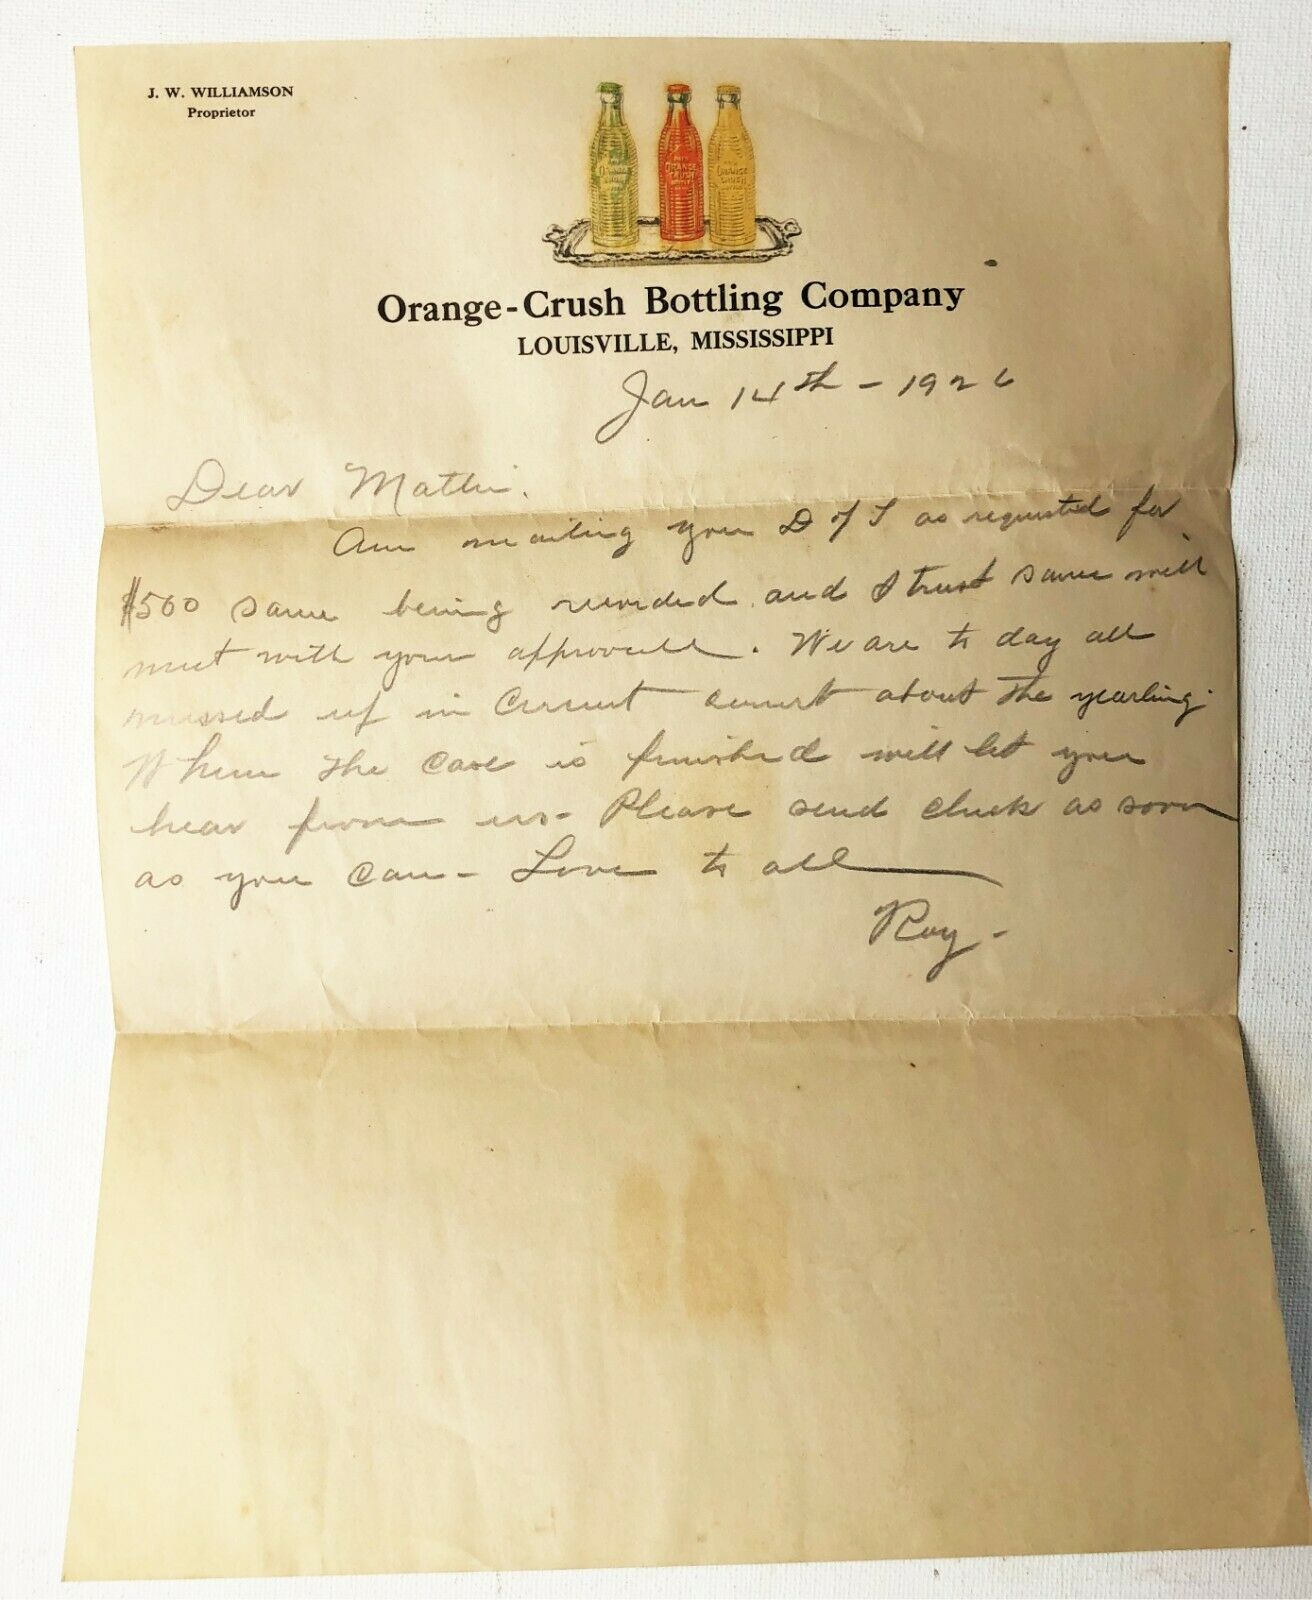 J. W. WILLIAMSON
Proprietor
ORANGE CRUSH
Orange-Crush Bottling Company
LOUISVILLE, MISSISSIPPI
Jan 14th - 1926
Dear Mattie.
Am mailing you D of T as requested for
$500 same being recorded and I trust same will
meet with your approvall. We are to day all
mussed up in Circuit court about the yearling.
When the case is finished will let you
hear from us - Please send check as soon
as you can - Love to all
Roy -